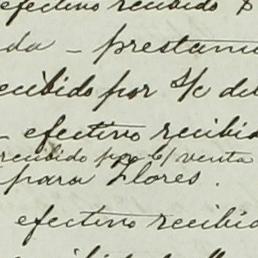 efectivo recibido $
da - prestamo
ecibido por S/c del
- efectivo recibid
recibido por c/ venta
para Flores.
efectivo recibid